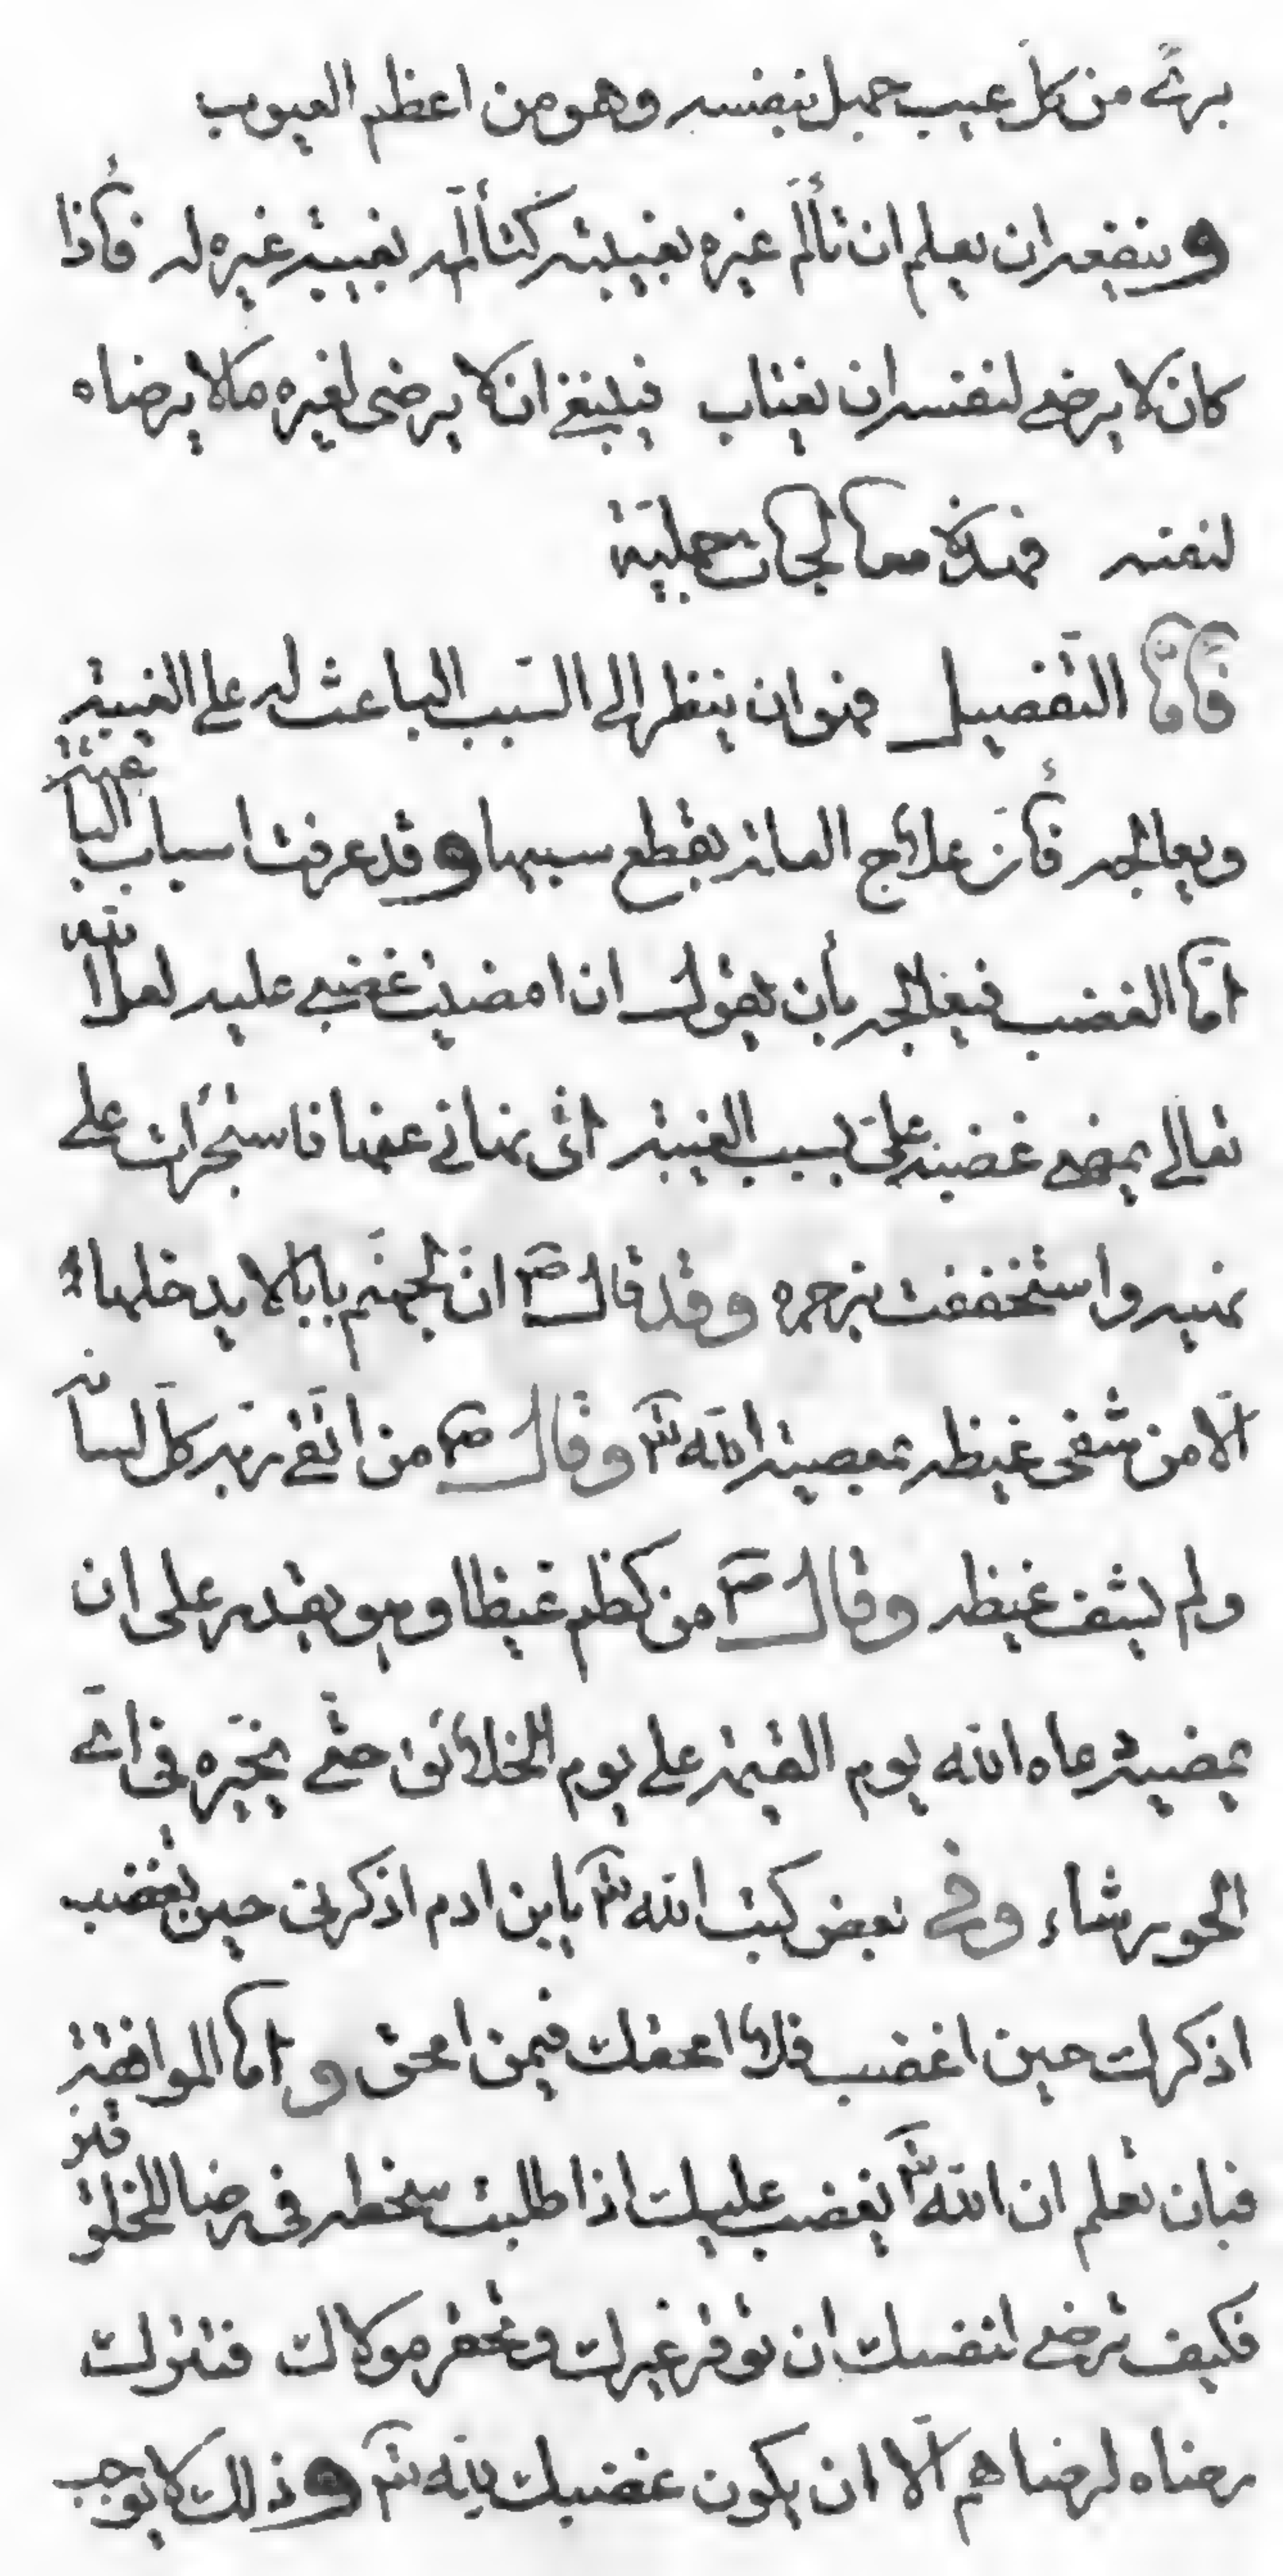 برئ من كلّ عيب جهل بنفسه وهو من اعظم العيوب
وينفعه ان يعلم ان تألّم غيره بغيبته كتألّمه بغيبة غيره له فأذا
كان لا يرضى لنفسه ان يغتاب فينبغي ان لا يرضى لغيره ما لا يرضاه
لنفسه فهذه معالجات جمليّة
فأمّا التفصيل فهو ان ينظر الى السّبب الباعث له على الغيبة
ويعالجه فأنّ علاج العلة بقطع سببها وقد عرفت اسباب الباعثة
امّا الغضب فيعالجه بأن يقول ان امضيت غضبي عليه لعل الله
تعالى يمضى غضبه علىّ بسبب الغيبة اذ نهاني عنها فاستجرأت على
نهيه واستخففت بزجره وقد قال ص انّ لجهنّم بابا لا يدخلها
الّا من شفى غيظه بمعصية الله تعـ وقال ص من اتّقى ربّه كلّ لسانه
ولم يشف غيظه وقال ص من كظم غيظا وهو يقدر على ان
يمضيه دعاه الله يوم القيمة على يوم الخلائق حتّى يخيّره في اىّ
الحور شاء وفي بعض كتب الله تعـ يا بن ادم اذكرنى حين تغضب
اذكرك حين اغضب فلا امحقك فيمن امحق وامّا الموافقة
فبان تعلم ان الله تعـ يغضب عليك اذا طلبت سخطه فى رضا المخلوقين
فكيف ترضى لنفسك ان توقر غيرك وتحقر مولاك فتترك
رضاه لرضاهم الّا ان يكون غضبك لله تعـ وذلك لا يوجب